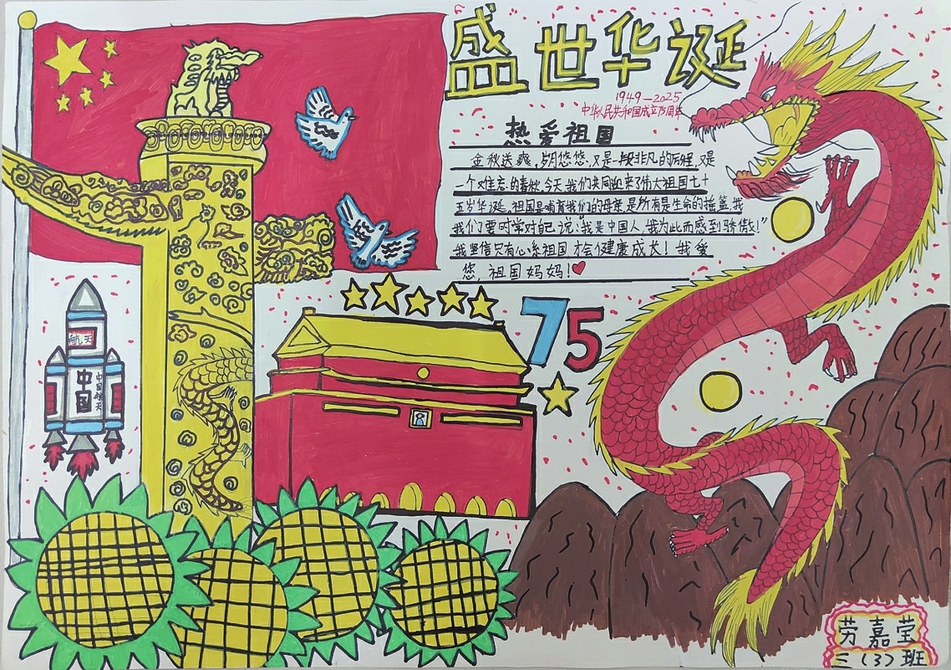 盛世华诞
1949—2025
中华人民共和国成立75周年
热爱祖国
金秋送爽,明悠悠,又是一段非凡的历程,又是
一个难忘的喜欢,今天,我们共同迎来了伟大祖国七十
五岁华诞,祖国是哺育我们的母亲,是所有是生命的摇篮,我
我们要时常对自己说:"我是中国人,我为此而感到骄傲!"
我坚信只有心系祖国才会健康成长!我爱
您,祖国妈妈!
75
航天
中国
中国航天
劳嘉莹
三(3)班